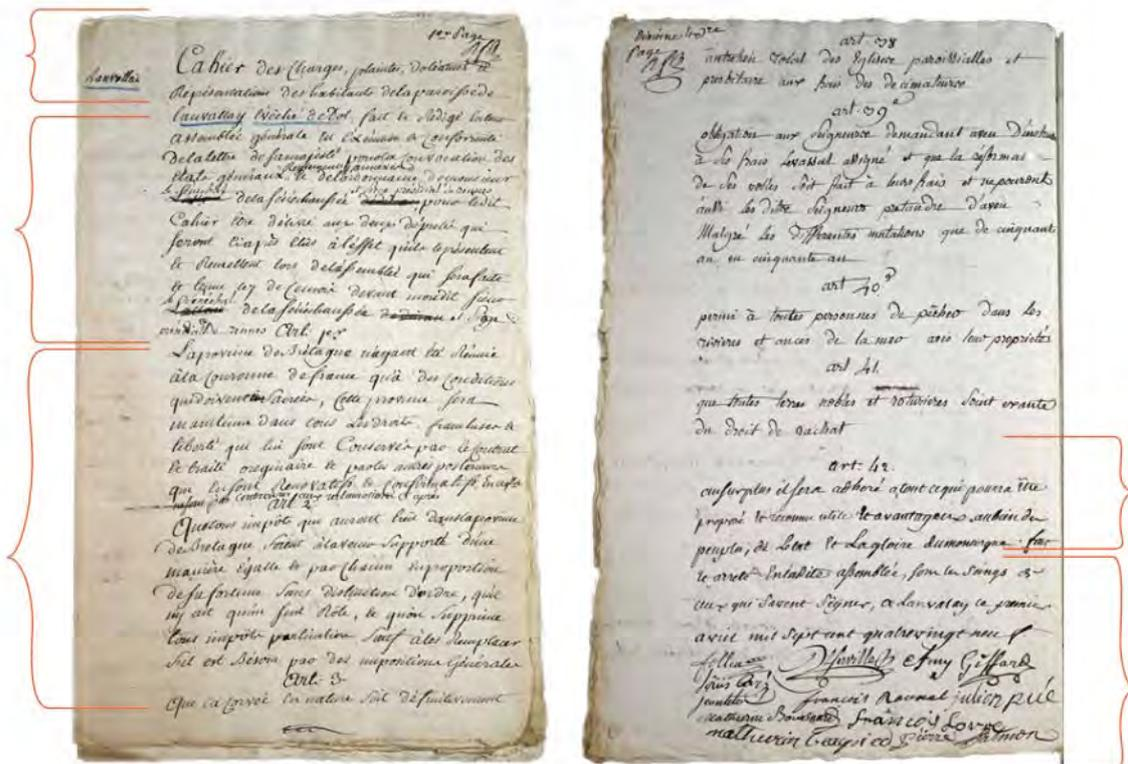 1er Page
Lanvallai
Cahier des Charges, plaintes, doléances et
Représentations des habitants de la paroisse de
Lanvallay Evéché de Dol, fait et Rédigé en leur
assemblée générale tenu en conformité
de la lettre de sa majesté pour la convocation des
états généraux et de l'ordonnance de monsieur
de la sénéchaussée pour ledit
Cahier être délivré aux deux député qui
seront ci après élus à l'effet qu'ils le présentent
et Remettent lors de l'assemblée qui sera faite
le de devant mondit sieur
de la sénéchaussée de et
rennes Art. 1er
La province de Bretagne n'ayant été Réunie
à la couronne de france qu'à des conditions
qui doivent sacrées, cette province sera
maintenue dans tous ses droits, franchises et
liberté qui lui sont Conservés par le contrat
et traité originaire et par les autres posterieurs
qui lui sont Renovatifs et Confirmatifs
Art 2
Que tous impots qui auront lieu dans la province
de Bretagne soient à l'avenir supporté d'une
manière égalle et par chacun en proportion
de sa fortune sans distinction d'ordre, qu'il
n'y ait qu'un seul Rôle, et qu'on supprime
tous impots particuliers sauf à les Remplacer
s'il est Besoin par des impositions Générales
Art. 3
Que la corvée en nature soit définitivement
Page
art. 38
des Eglises paroissielles et
presbitaire aux frais des décimateurs
art. 39e
obligation aux seigneurs demandant aveu D'instruire
à ses frais Levassal assigné et que la réformas
de ses rolles soit fait à leurs frais et ne pouront
aussi les dits seigneurs pretandre d'aveu
Malgré les differentes mutations que de cinquant
an en cinquante an
art 40e
permi à toutes personnes de pêcher dans les
rivieres et ances de la mer avis leur propriétés
art 41.
que toutes terres nobles et roturieres soint exante
du droit de rachat
art. 42.
ausurplus il sera adhéré a tout ce qui pourra être
proposé et reconnu utile et avantageux au bien du
peuple, de L'etat et La gloire du monarque. fait
et arreté En ladite assemblée, sous les Seings de
ceux qui savent signer, a Lanvalay ce premie
avril mil sept cent quatre vingt neuf
Giffard
françois Raunal julien pué
françois
mathurin pierre Salmon